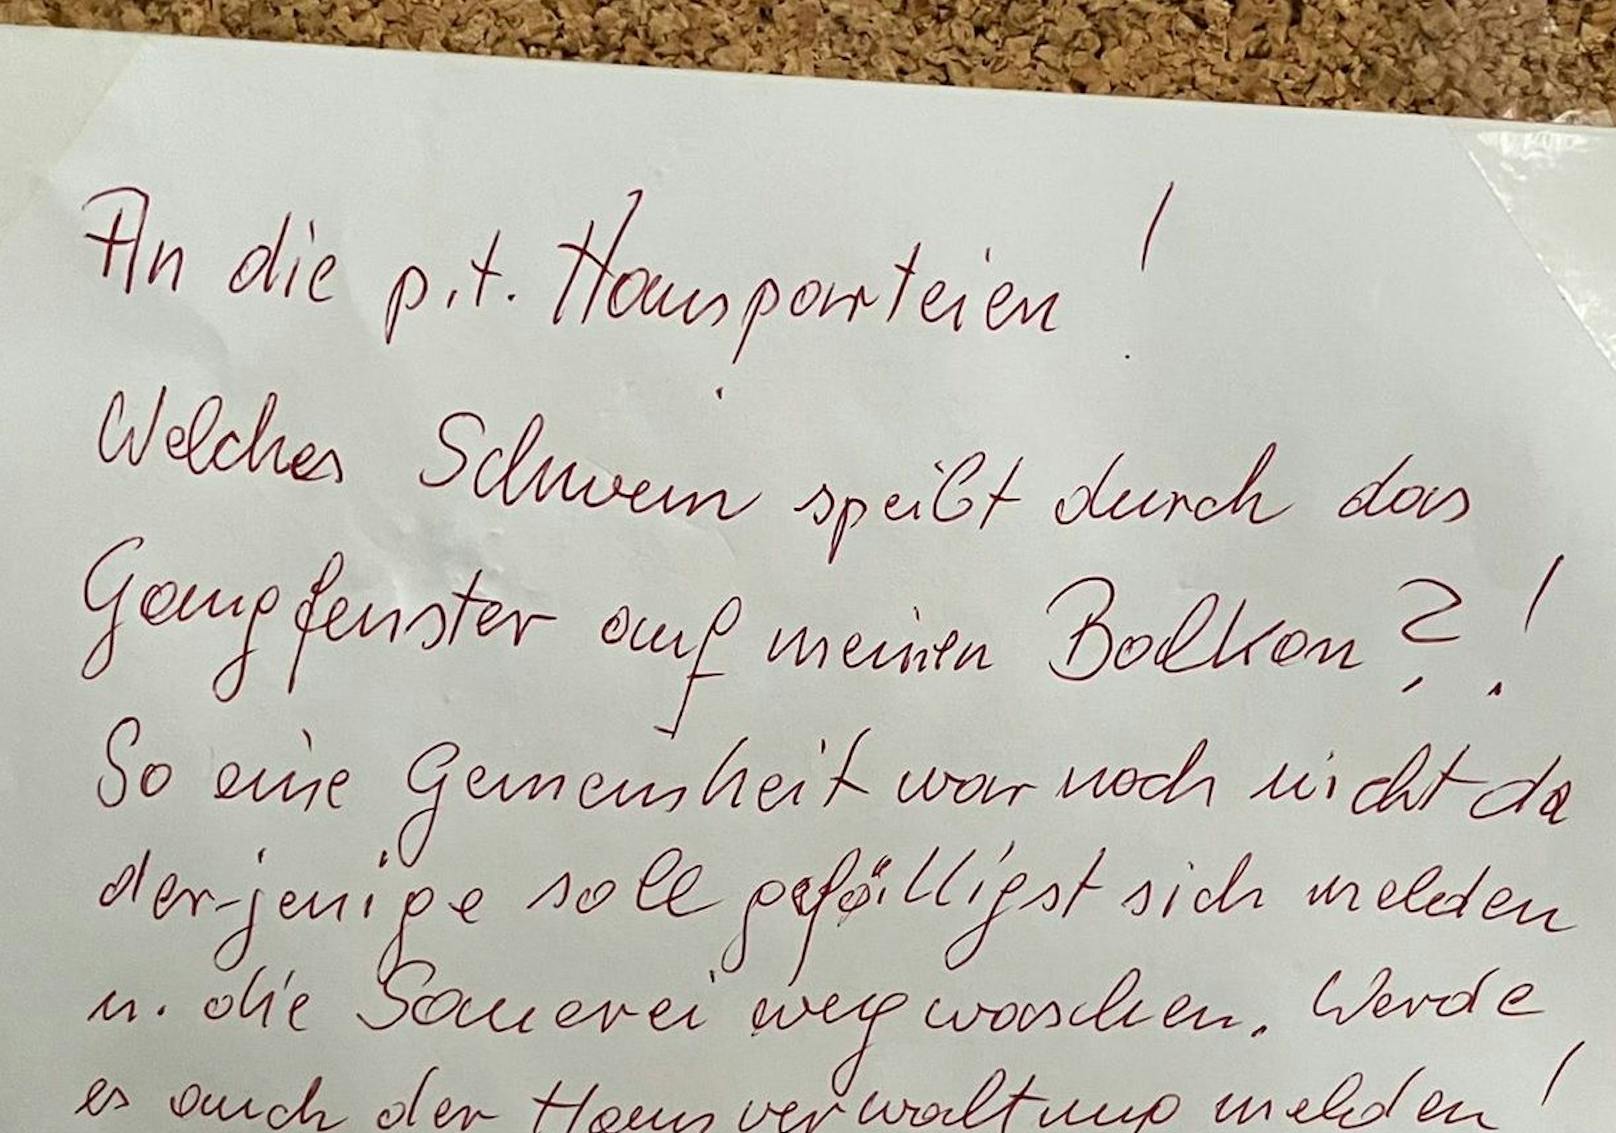 An die p.t. Hausparteien!
Welches Schwein speibt durch das
Gangfenster auf meinen Balkon?!
So eine Gemeinheit war noch nicht da
der-jenige soll gefälligst sich melden
u. die Sauerei weg waschen. Werde
es auch der Hausverwaltung melden!